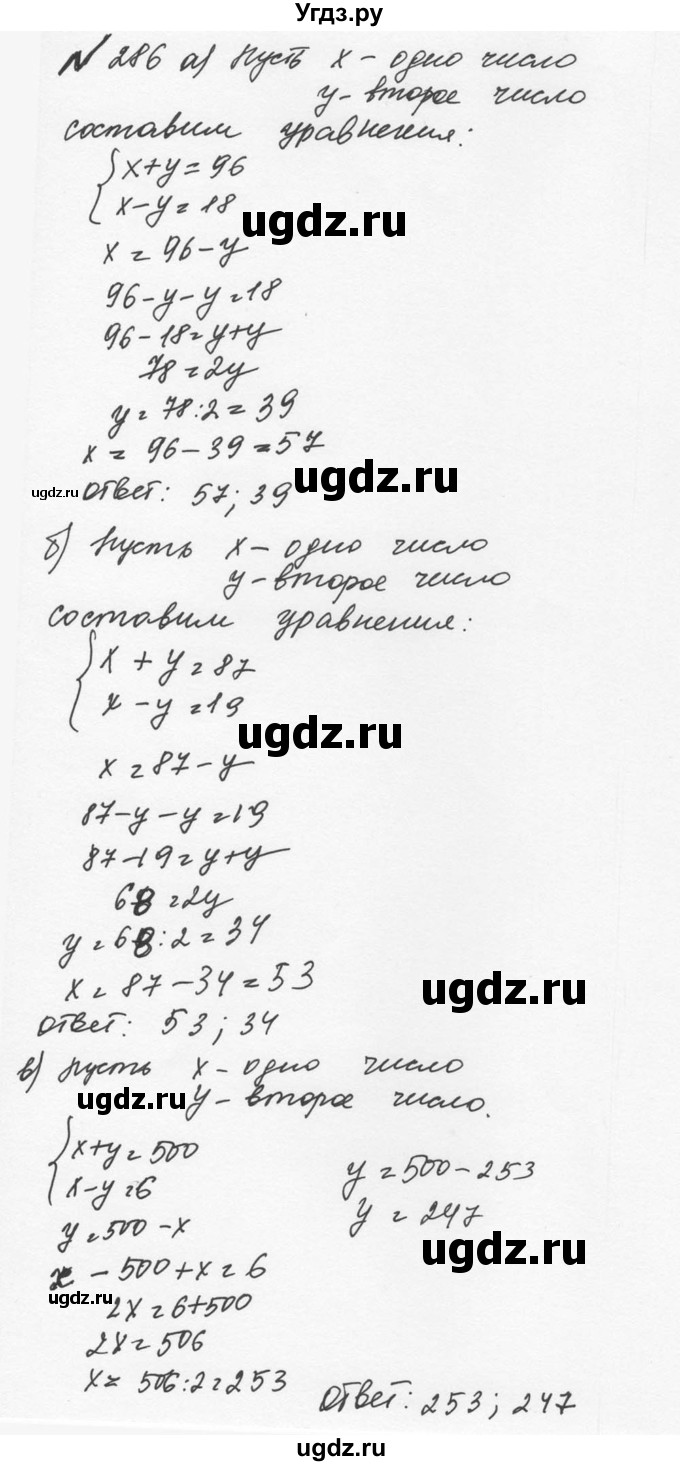 Угдз.ру
№ 286 а) Пусть x – одно число
y – второе число
составим уравнения:
x+y=96
x-y=18
ugdz.ru
x = 96-y
96-y-y=18
96-18=y+y
78=2y
y=78:2=39
x = 96-39=57
ugdz.ru
ugdz.ru
ответ: 57; 39
б) Пусть x – одно число
y – второе число
составим уравнения:
x+y=87
x-y=19
ugdz.ru
x=87-y
87-y-y=19
87-19=y+y
68=2y
y=68:2=34
x=87-34=53
ugdz.ru
ответ: 53; 34
в) Пусть x – одно число
ugdz.ru
y – второе число.
x+y=500
x-y=6
y=500-x
x-500+x=6
ugdz.ru
2x=6+500
2x=506
x=506:2=253
y=500-253
y=247
ugdz.ru
ответ: 253; 247
ugdz.ru